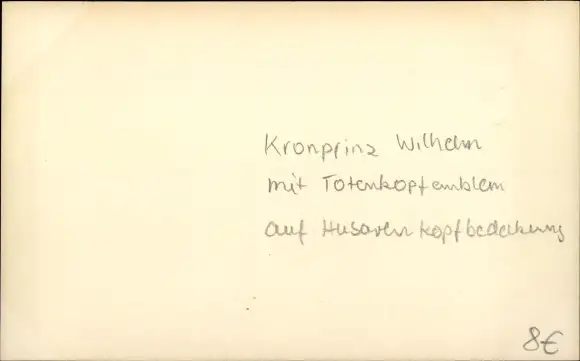 Kronprinz Wilhelm
mit Totenkopfemblem
auf Husarenkopfbedeckung
8€